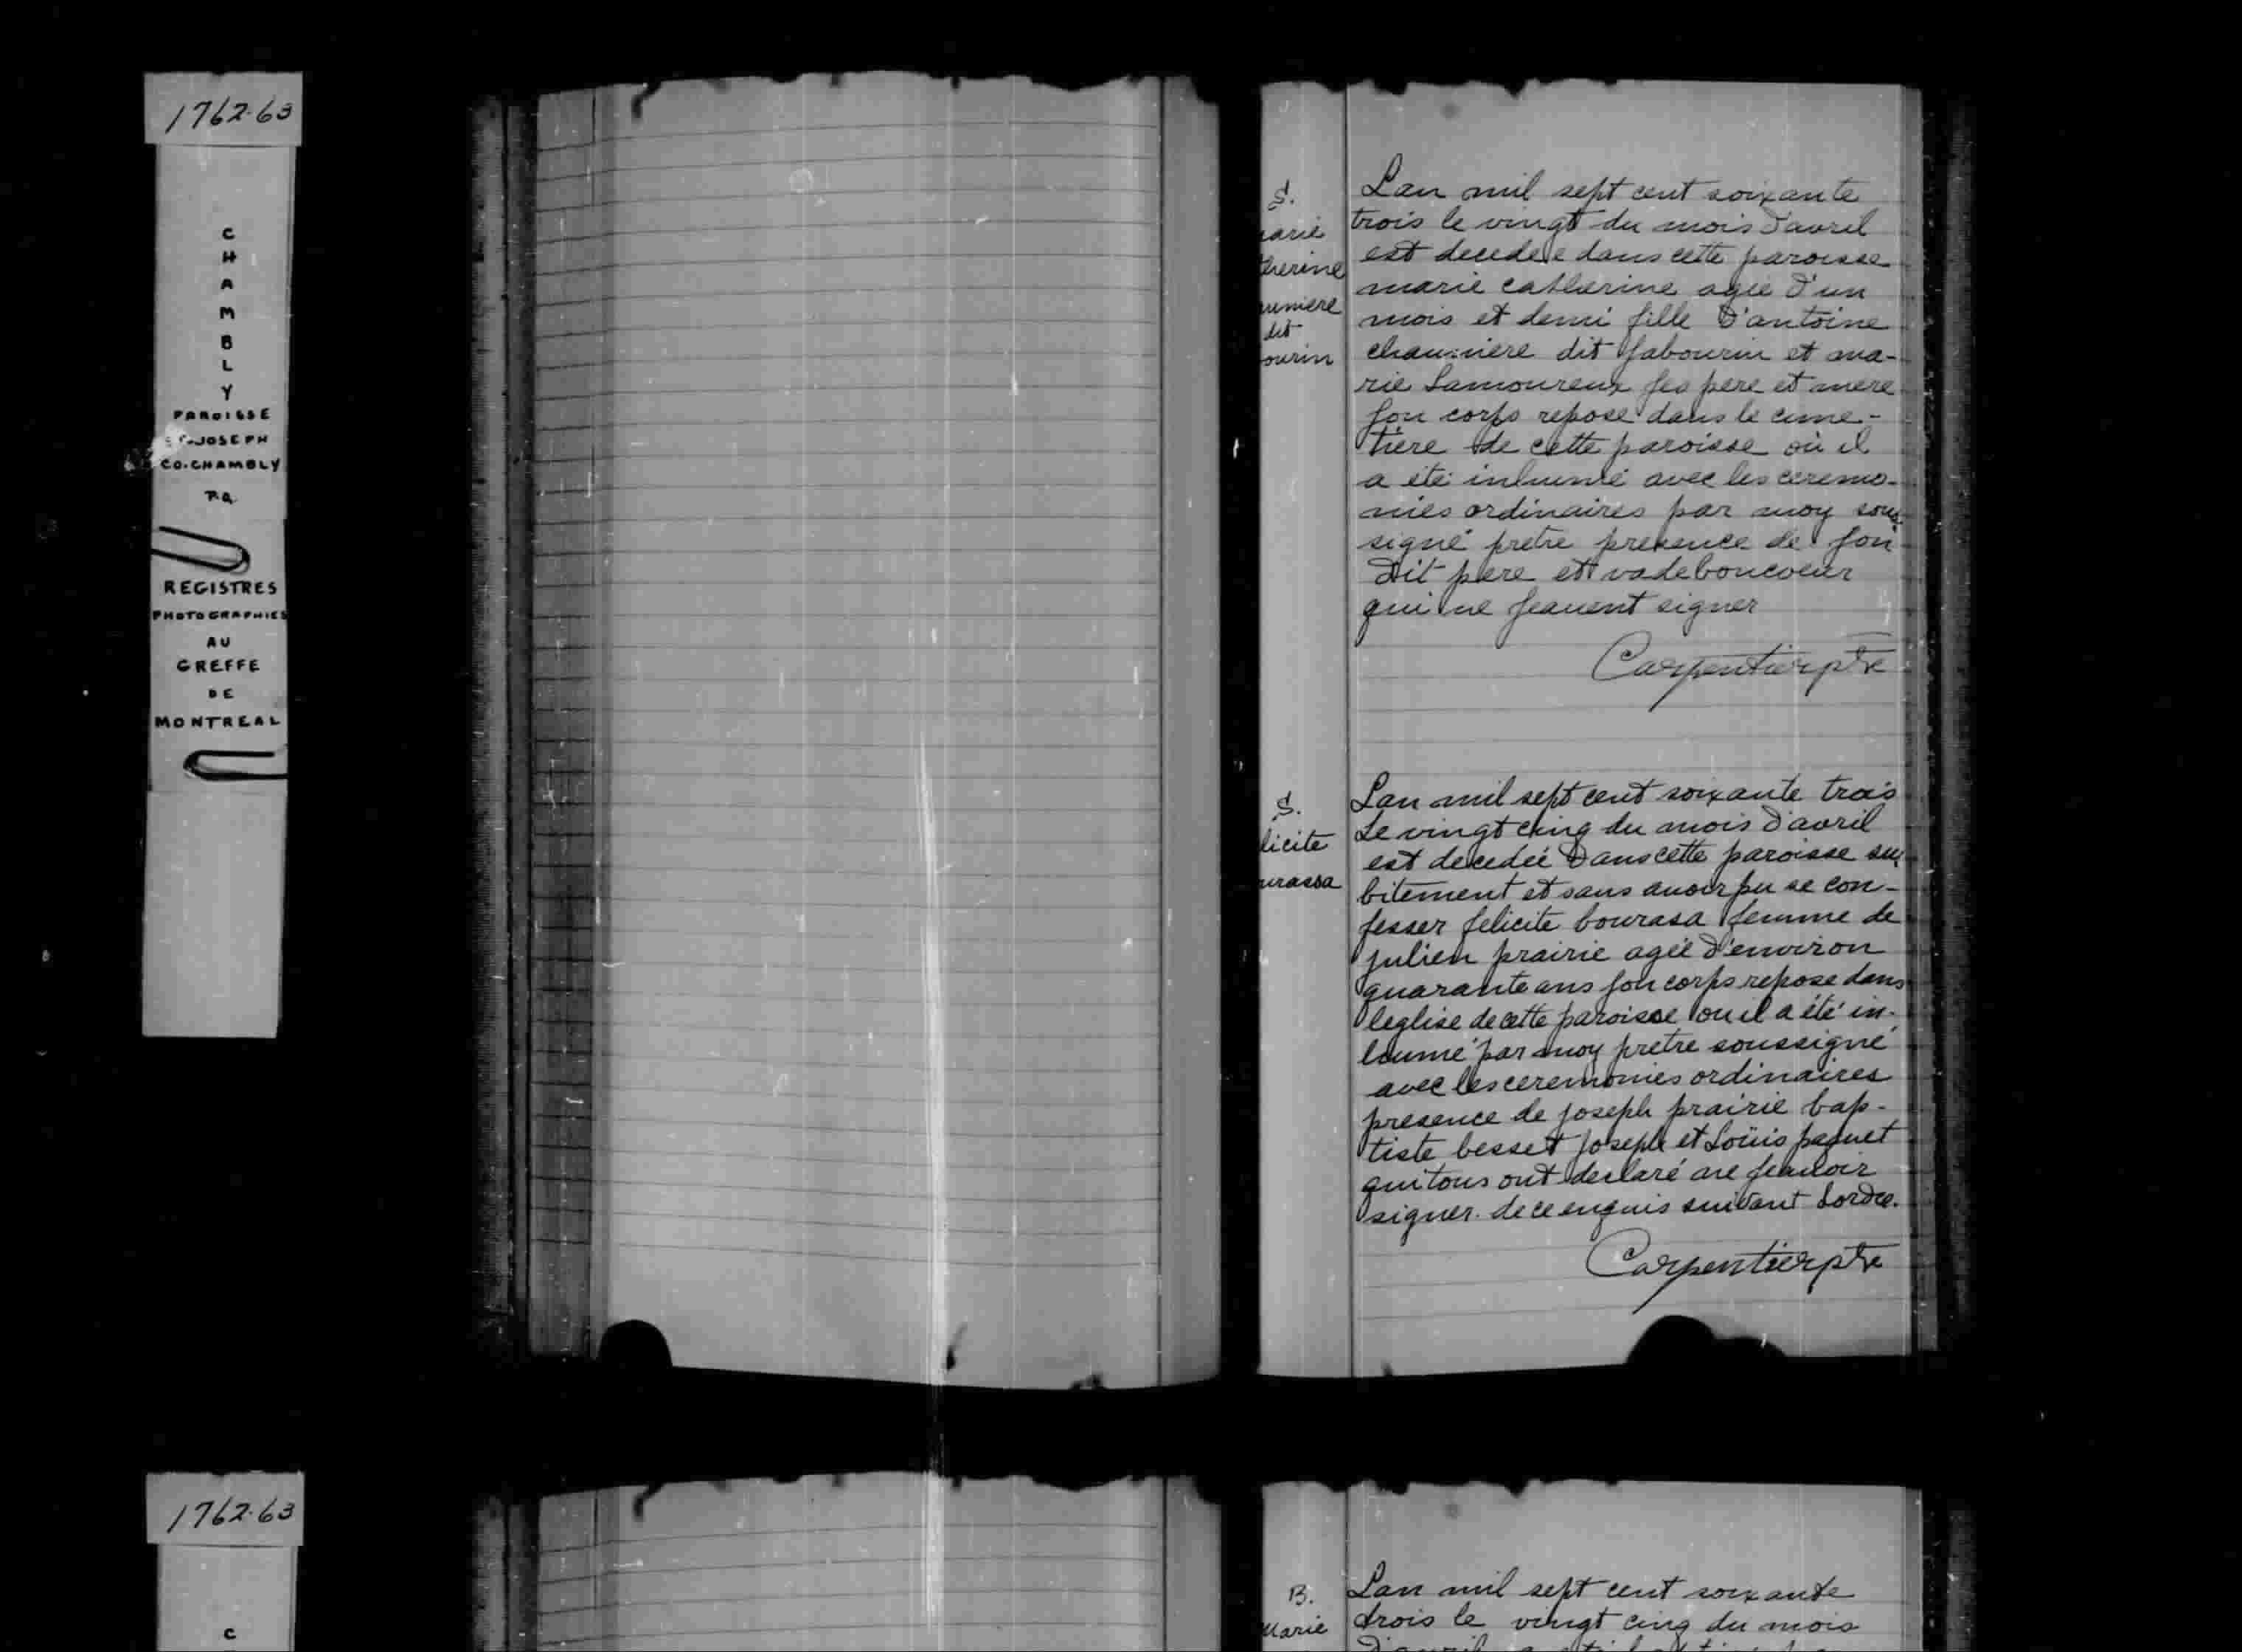 1762-63
C
H
A
M
B
L
Y
PAROISSE
ST-JOSEPH
CO. CHAMBLY
P.Q.
REGISTRES
PHOTOGRAPHIES
AU
GREFFE
DE
MONTREAL
S.
arie
therine
umiere
dit
ourin
Lan mil sept cent soixante
trois le vingt du mois d'avril
est decedeé dans cette paroisse
marie catherine ageé d'un
mois et demi fille d'antoine
chaumiere dit sabourin et ma-
rie Lamoureux ses pere et mere
son corps repose dans le cime-
tiere de cette paroisse où il
a été inhumé avec les ceremo-
nies ordinaires par moy sous
signé pretre presence de son
dit pere et vadeboncoeur
qui ne seauent signer
Carpentier ptre
S.
licite
urassa
Lan mil sept cent soixante trois
Le vingt cinq du mois d'avril
est decedeé dans cette paroisse su-
bitement et sans auoir pu se con-
fesser felicite bourasa femme de
julien prairie ageé d'environ
quarante ans son corps repose dans
leglise de cette paroisse ou il a été in-
humé par moy pretre soussigné
avec les ceremonies ordinaires
presence de joseph prairie bap-
tiste besset joseph et Loüis paquet
qui tous ont declaré ne seauoir
signer. de ce enquis suivant Lordre.
Carpentier ptre
1762-63
C
B.
Marie
Lan mil sept cent soixante
trois le vingt cinq du mois